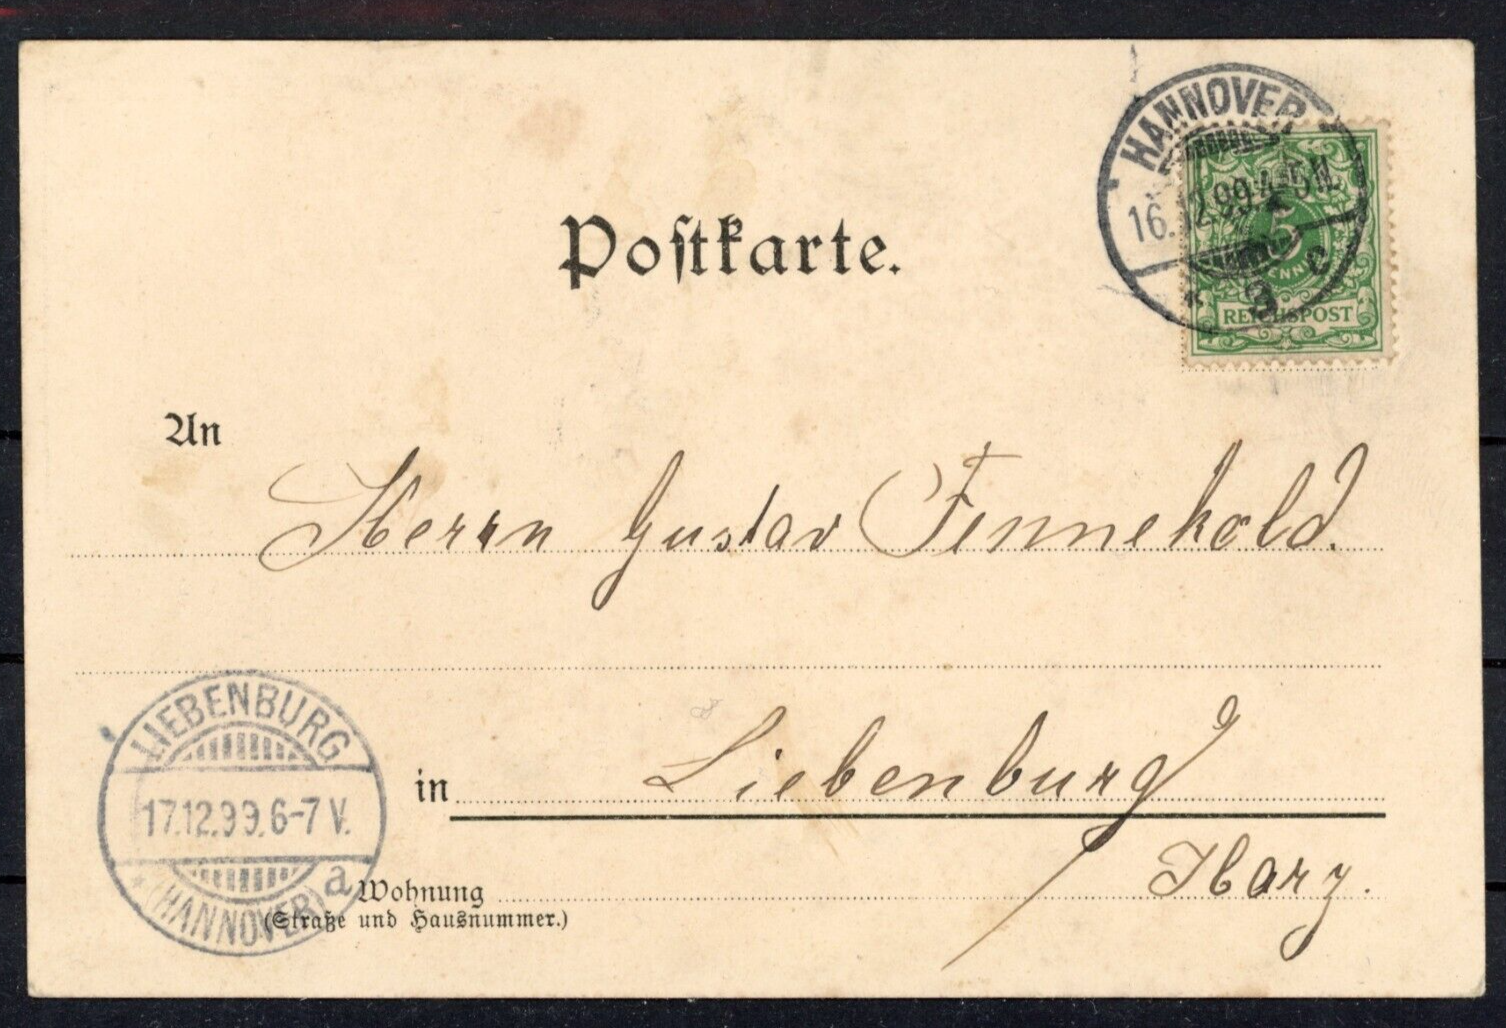 HANNOVER
16.12.99.4-5N.
* 3 c
5
PFENNIG
REICHSPOST
Postkarte.
An
Herrn Gustav Fennekold.
in Liebenburg
Harz.
Wohnung
(Straße und Hausnummer.)
LIEBENBURG
17.12.99.6-7 V.
* (HANNOVER) a